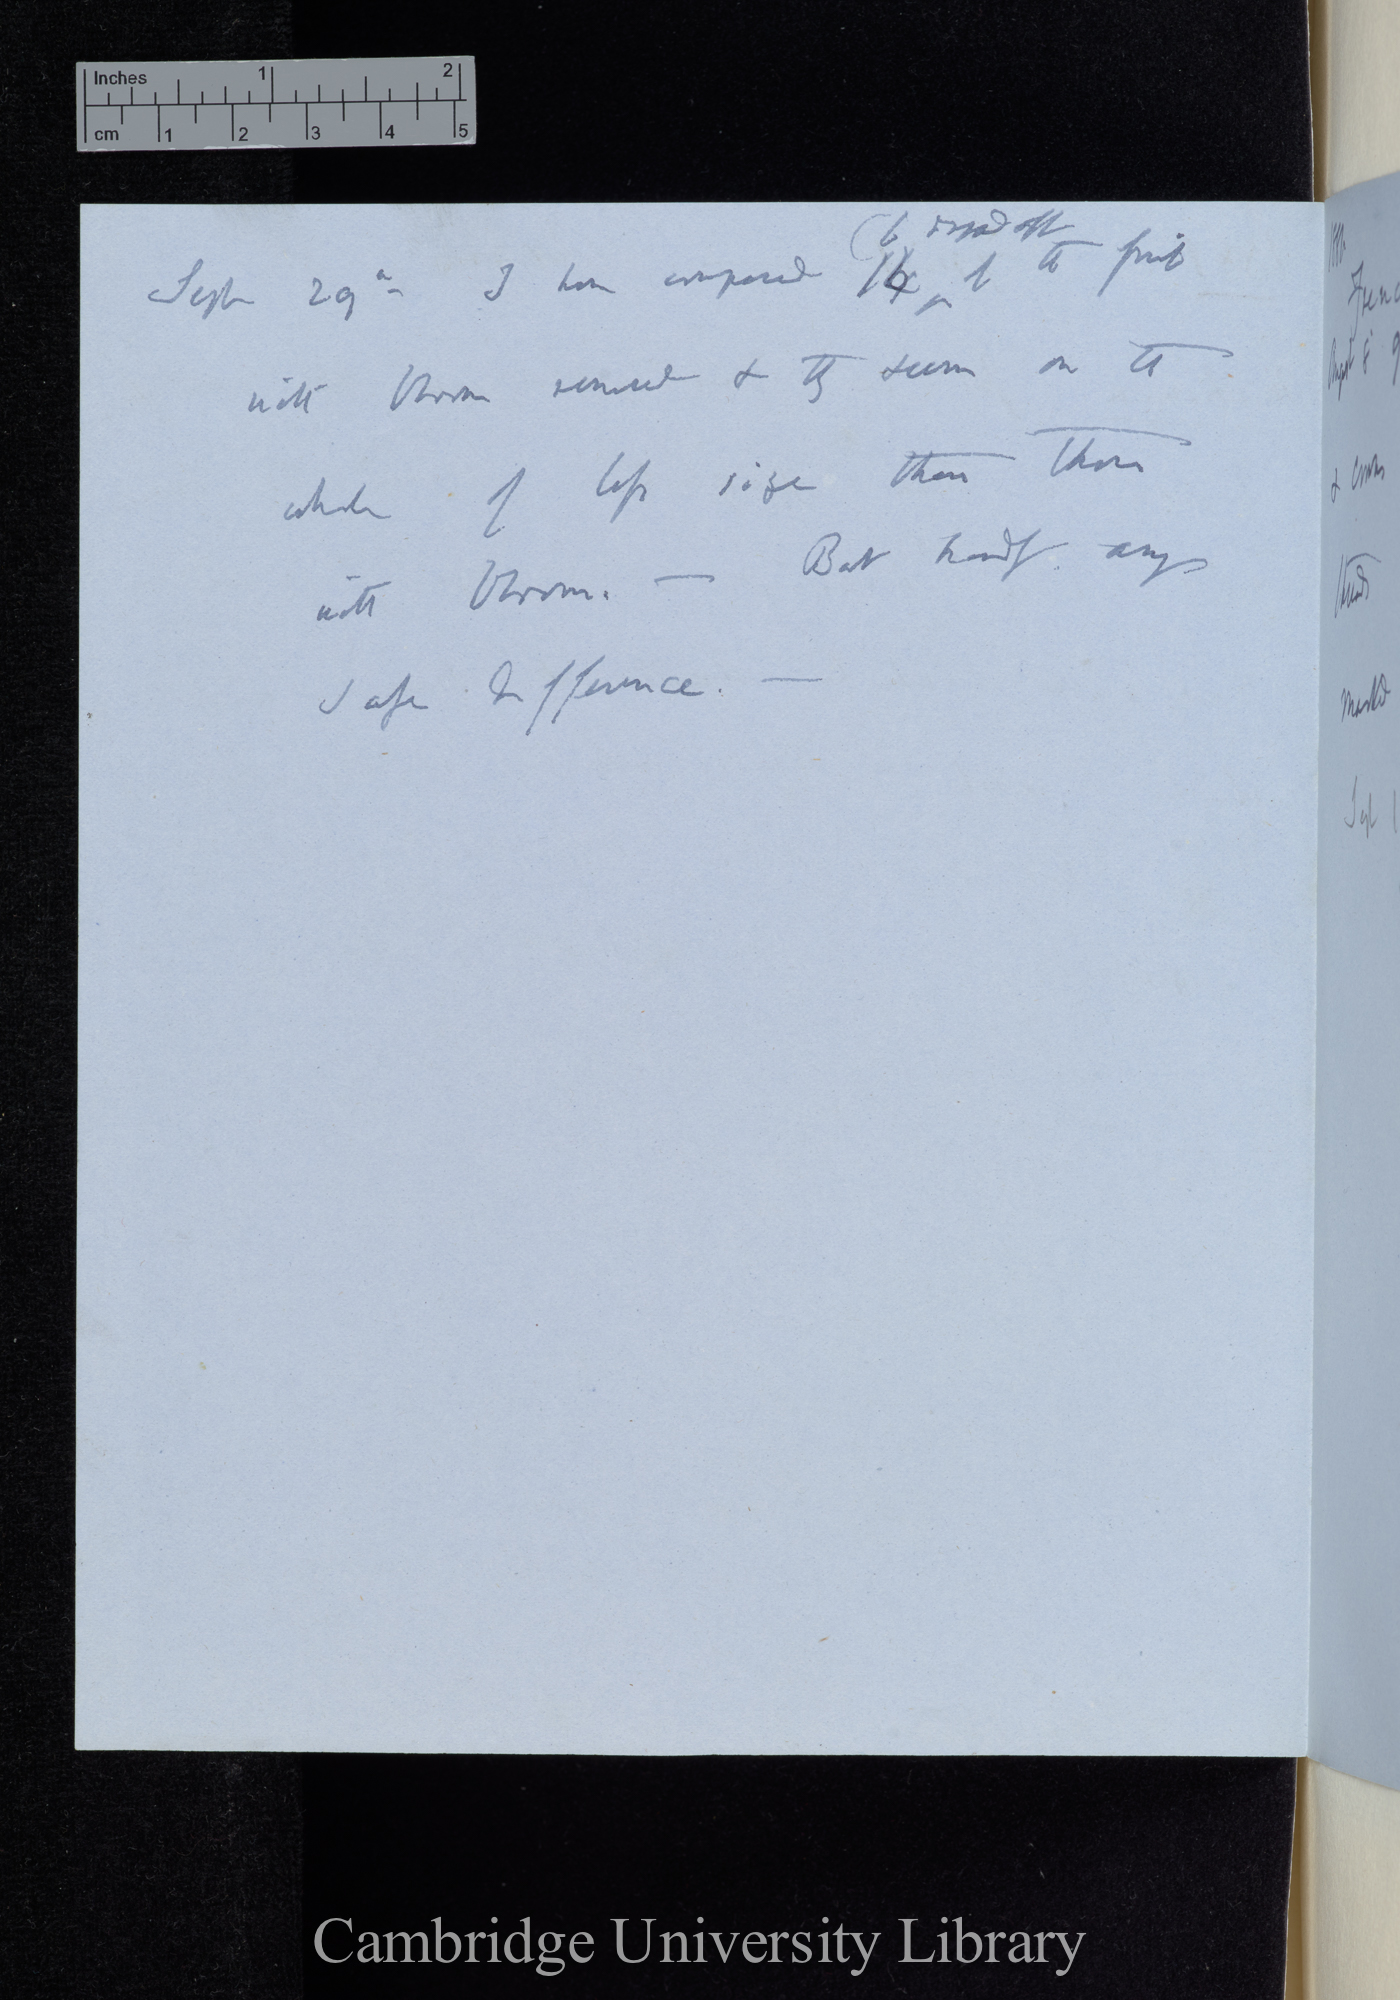 Inches 1 2
cm 1 2 3 4 5
Sept 29th I have compared of the fruit
with bloom removed & they seem on the
whole of less size than those
with bloom. — But hardly any
safe difference. —
Cambridge University Library